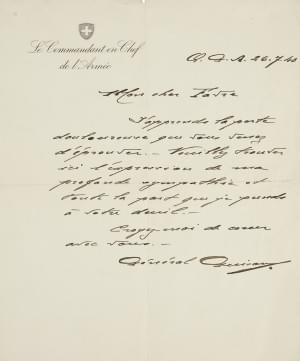 Le Commandant en Chef
de l'Armée
Q. G. A. 26.7.40
Mon cher
J'apprends la perte
douloureuse que vous venez
d'éprouver. – Veuillez trouver
ici l'expression de ma
profonde sympathie et
toute la part que je prends
à votre deuil. –
Croyez-moi de cœur
avec vous. –
Général Guisan